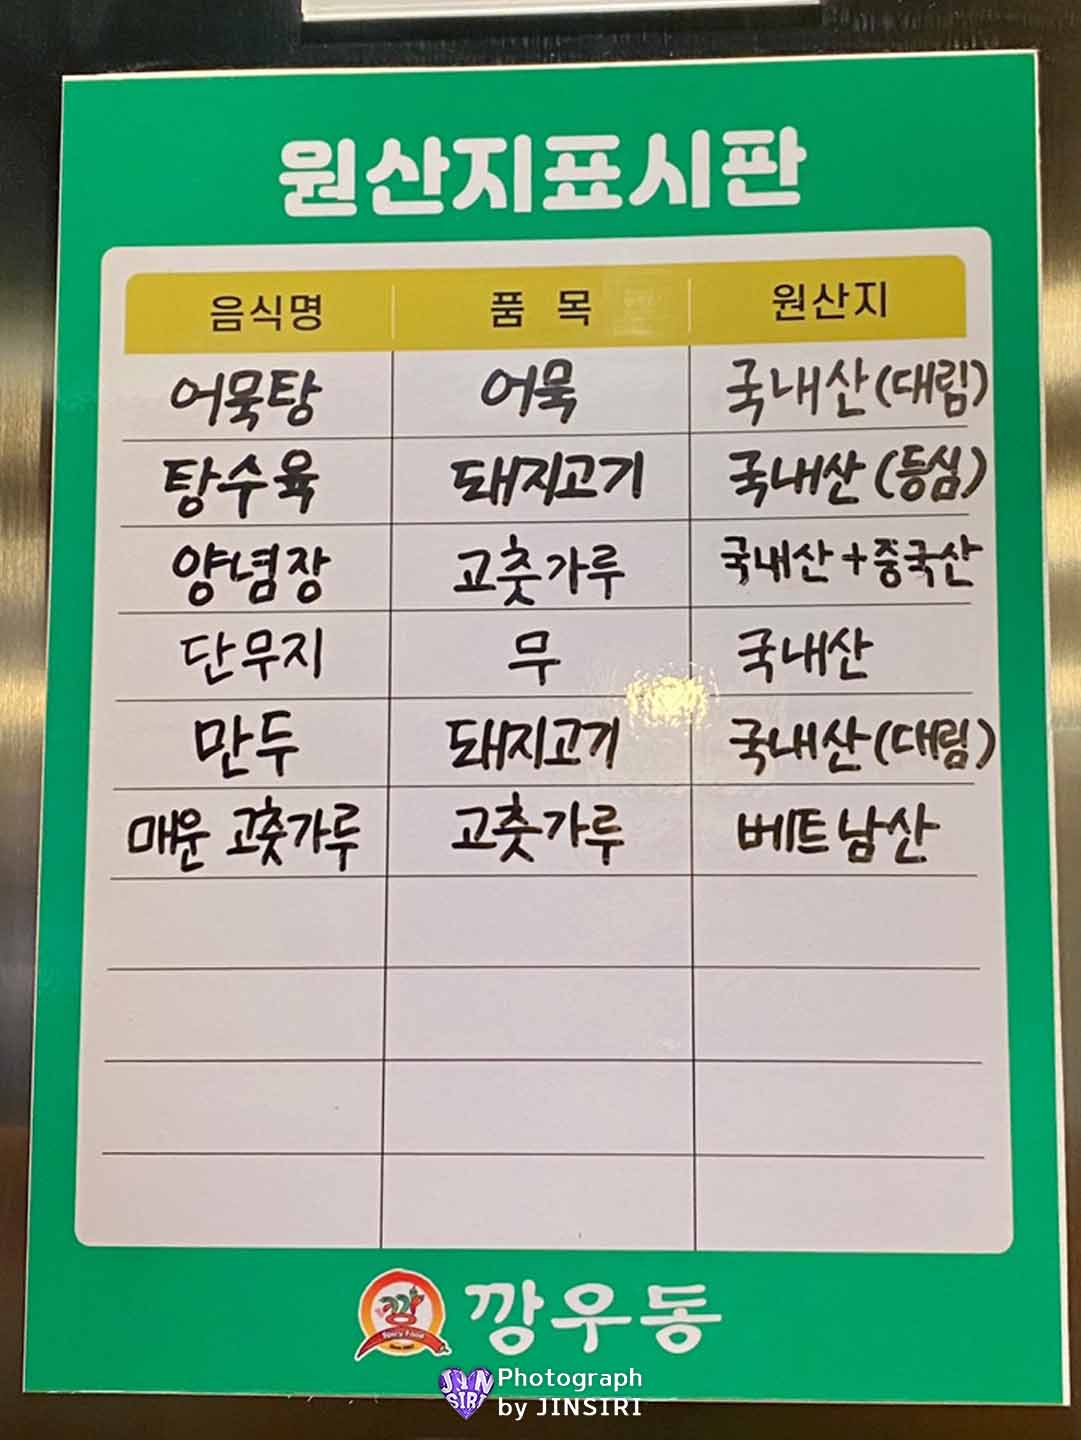 원산지표시판
음식명 품 목 원산지
어묵탕 어묵 국내산(대림)
탕수육 돼지고기 국내산(등심)
양념장 고춧가루 국내산+중국산
단무지 무 국내산
만두 돼지고기 국내산(대림)
매운 고춧가루 고춧가루 베트남산
깡
Spicy Food
깡우동
JIN
SIRI
Photograph
by JINSIRI